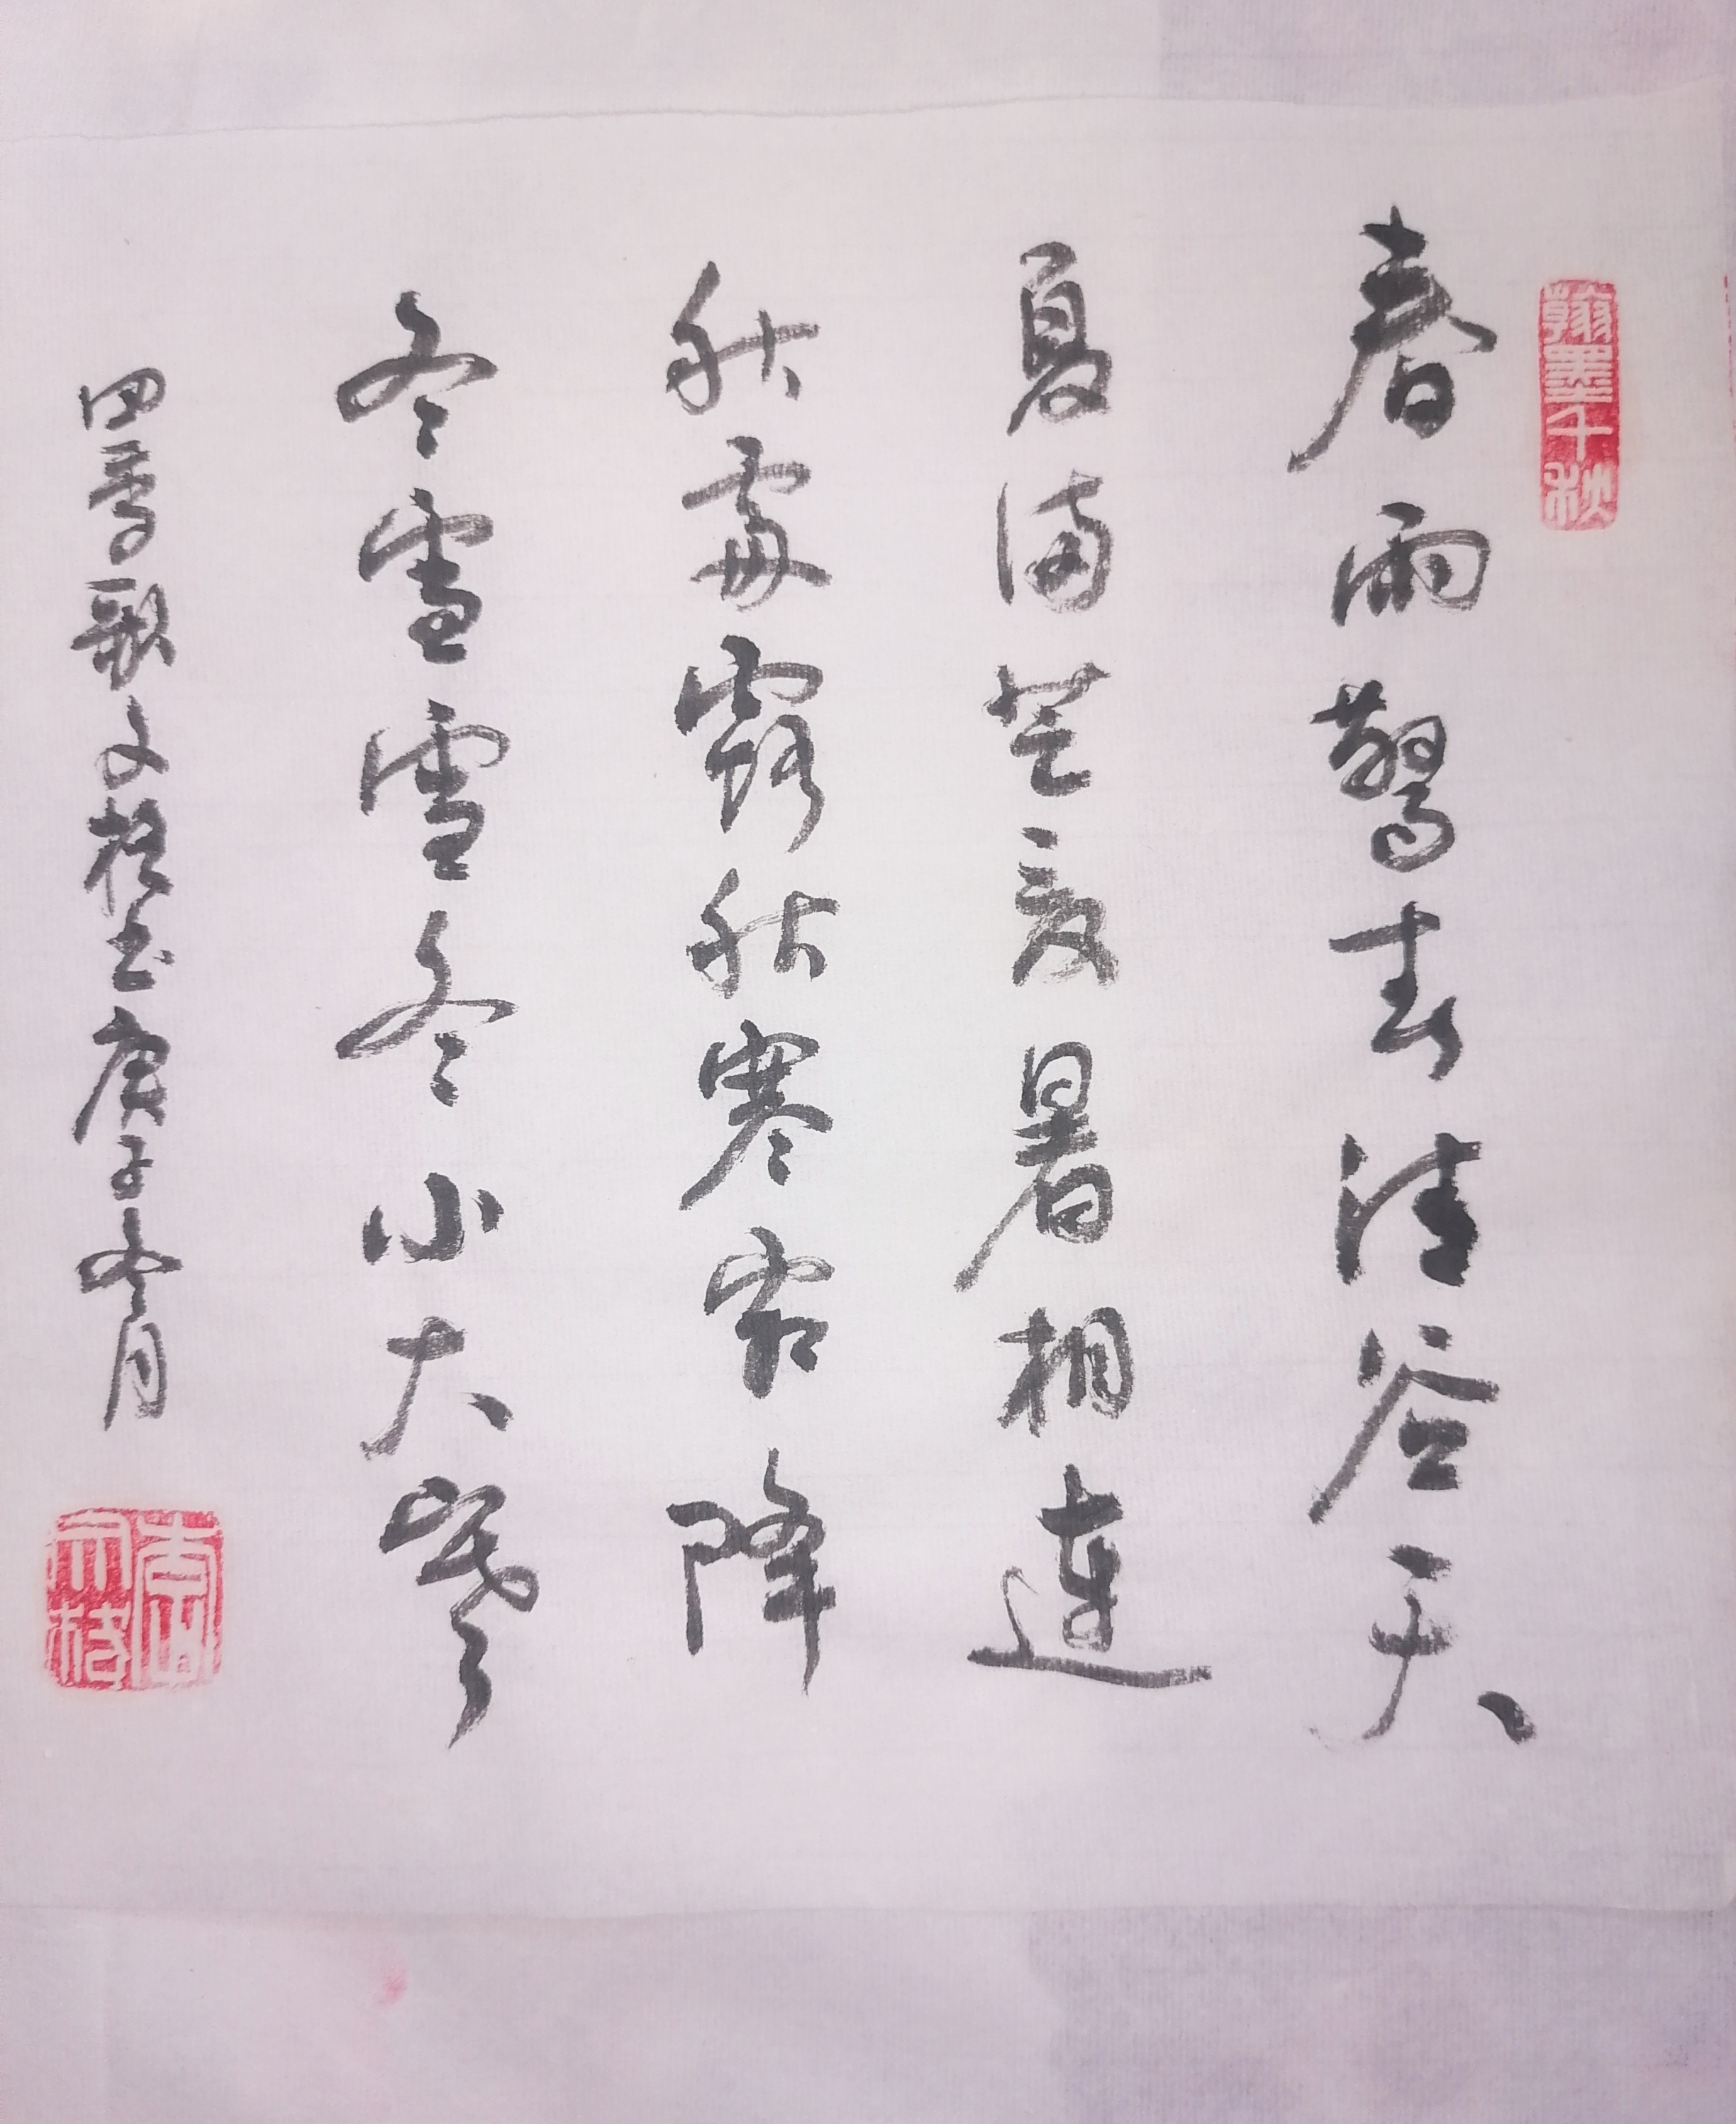 翰墨千秋
春雨驚春清谷天
夏滿芒夏暑相連
秋處露秋寒霜降
冬雪雪冬小大寒
四季歌 文 書 庚子冬月